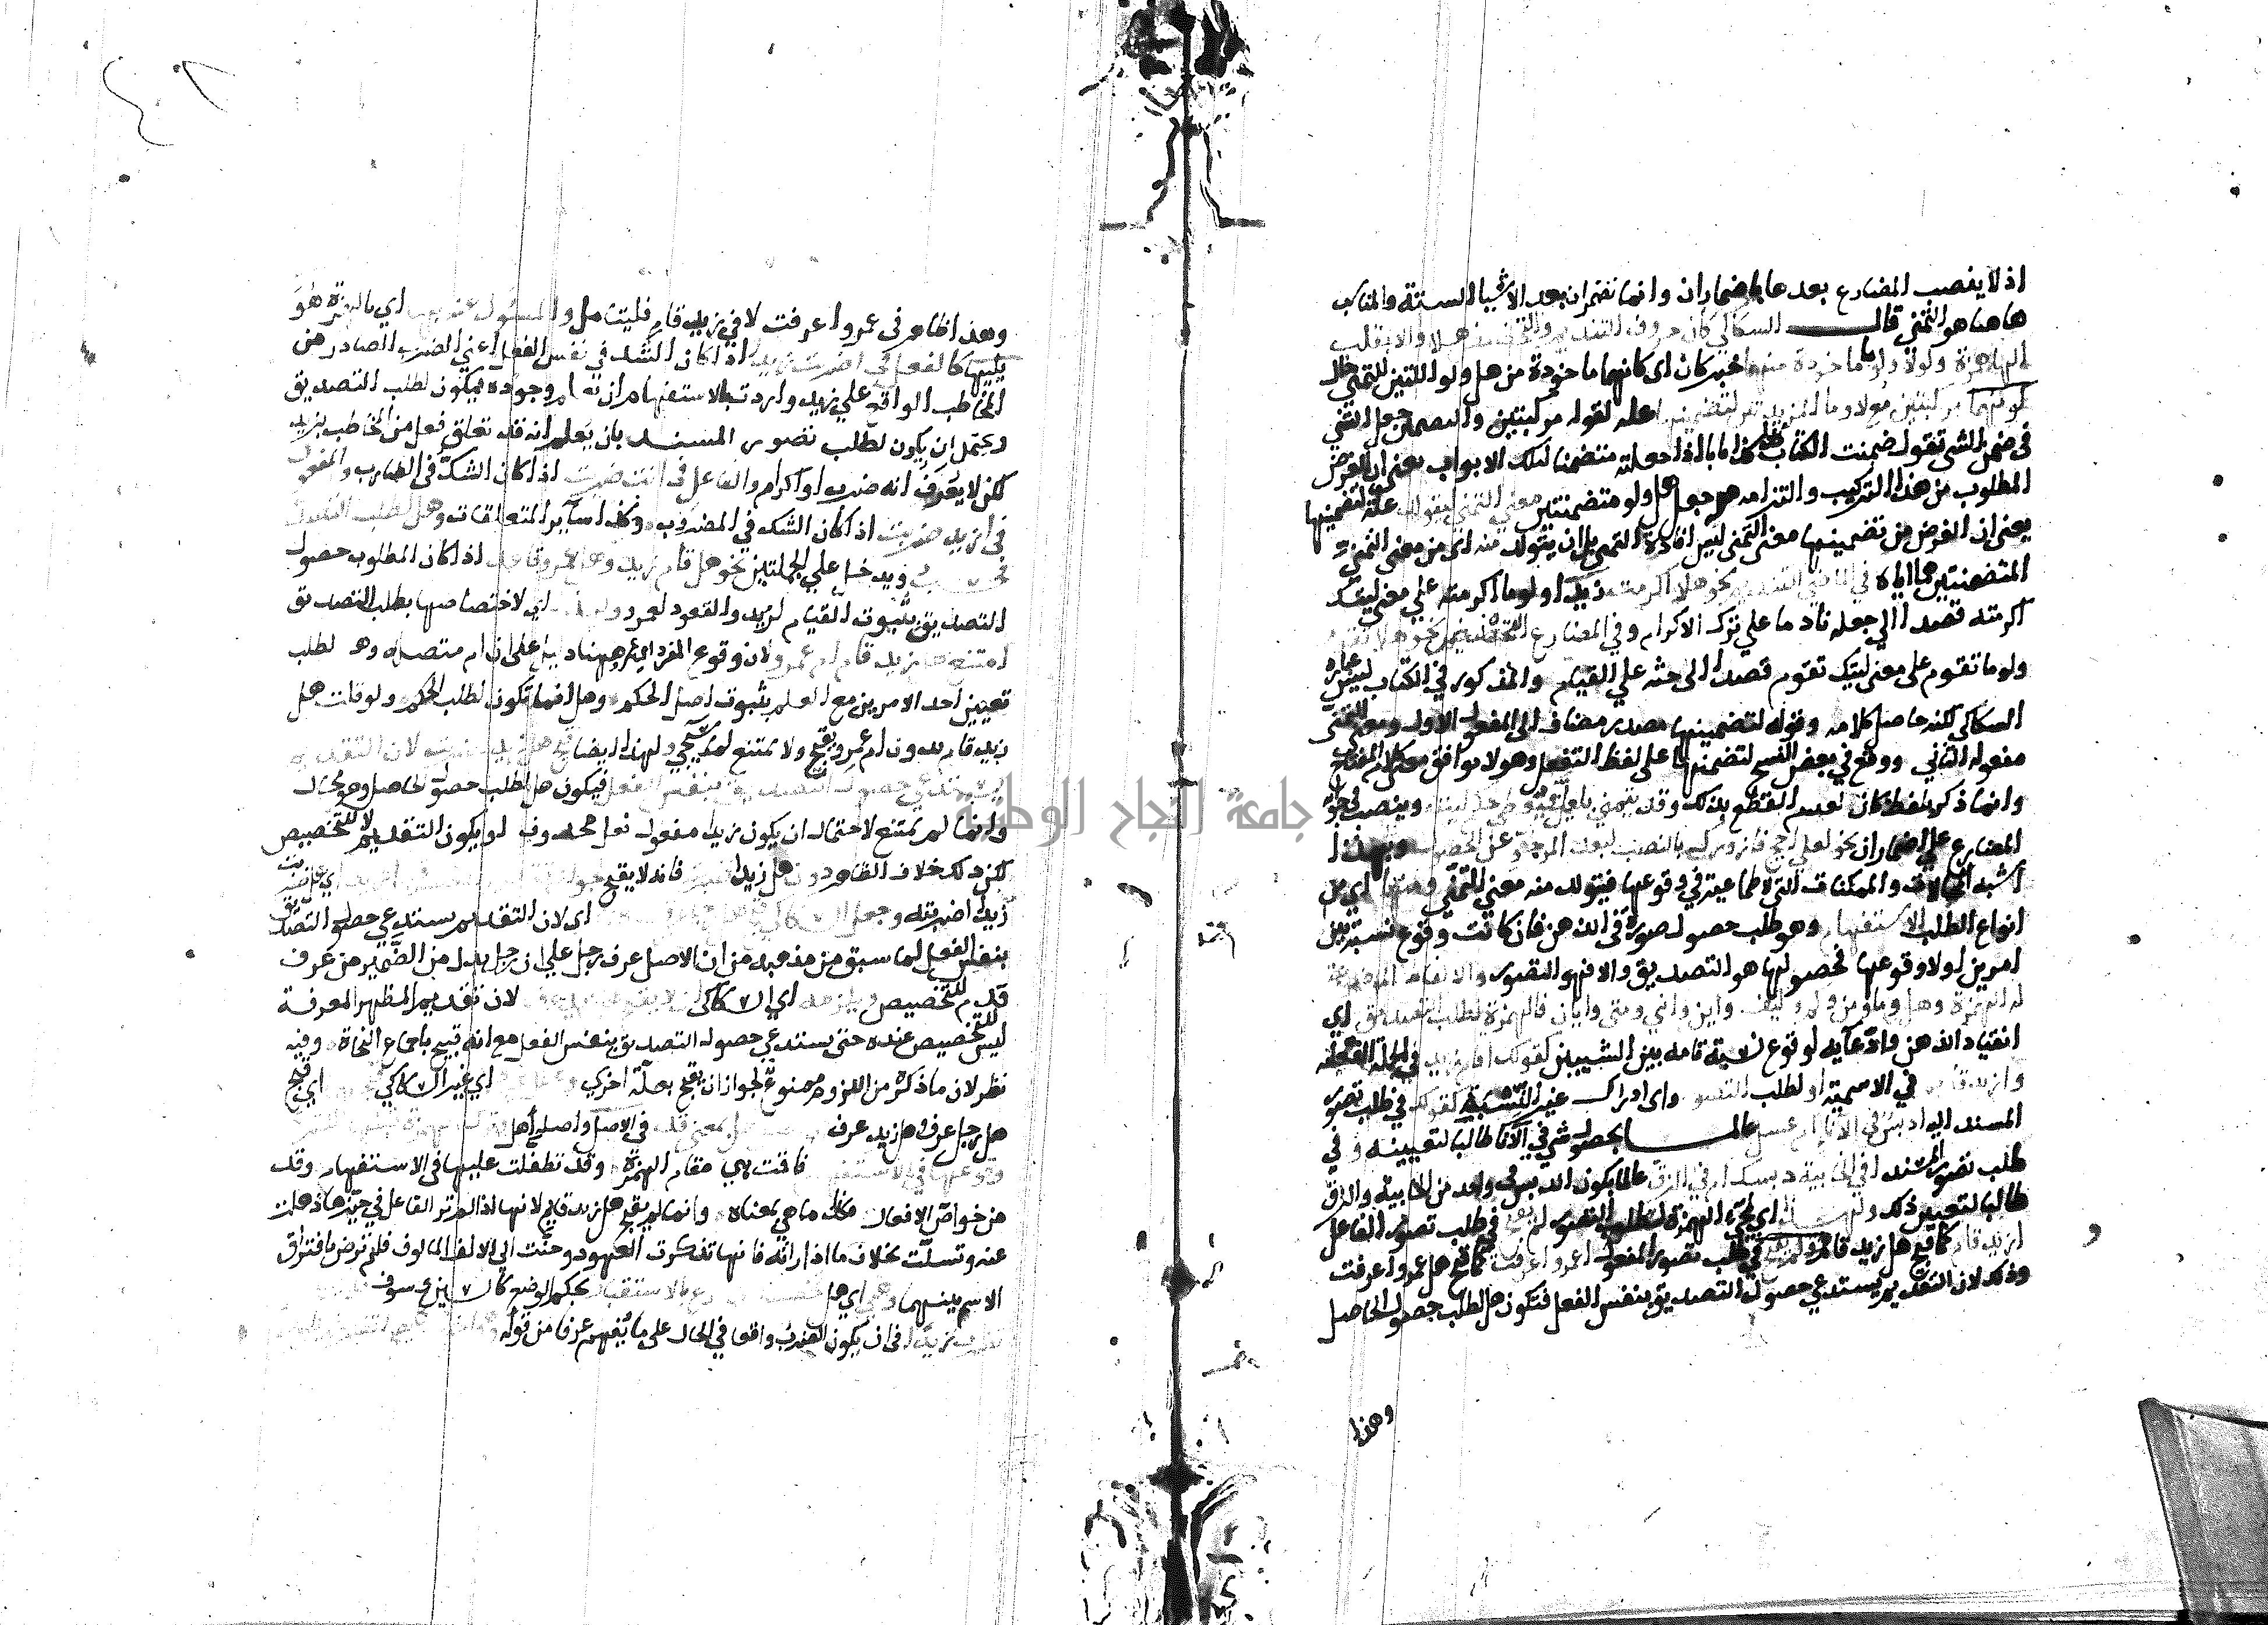 اذ لا ينصب المضارع بعدها باضماران وانما تضمر ان بعد الاشيا الستة والمناسب
هاهنا هو التمني قال السكاكي كان حروف التنديم والتحضيض هلا والا بقلب
الها همزة ولولا ولوما ماخوذة منهما خبر كان اى كانها ماخوذة من هل ولو اللتين للتمني حال
كونهما مركبتين مع لا وما المزيدتين لتضمينهما علة لقوله مركبتين والتضمين جعل الشي
فى ضمن الشي تقول ضمنت الكتاب كذا بابا اذا جعلته متضمنا لتلك الابواب يعنى ان الغرض
المطلوب من هذا التركيب والتزامه هو جعل هل ولو متضمنتين معنى التمني ليتولد علة لتضمينها
يعنى ان الغرض من تضمينهما معنى التمنى ليس افادة التمني بل ان يتولد منه اى من معنى التمني
المتضمنتين هما اياه في الماضي التنديم نحو هلا اكرمت زيدا ولوما اكرمته على معنى ليتك
اكرمته قصدا الى جعله نادما على ترك الاكرام وفي المضارع التحضيض نحو هلا تقوم
ولوما تقوم على معنى ليتك تقوم قصدا الى حثه على القيام والمذكور في الكتاب ليس عبارة
السكاكي لكنه حاصل كلامه وقوله لتضمينهما مصدر مضاف الى المفعول الاول ومعنى التمني
مفعوله الثاني ووقع في بعض النسخ لتضمنهما على لفظ التفعل وهو لا يوافق معنى كلام المفتاح
وانما ذكر بلفظ كان لعدم القطع بذلك وقد يتمنى بلعل فيعطى حكم ليت وينصب في جوابه
المضارع على اضماران نحو لعلي احج فازورك بالنصب لبعد المرجو عن الحصول وبهذا
اشبه المحالات والممكنات التي لا طماعية في وقوعها فيتولد منه معنى التمني ومنها اي من
انواع الطلب الاستفهام وهو طلب حصول صورة في الذهن فان كانت وقوع نسبة بين
امرين اولا وقوعها فحصولها هو التصديق والا فهو التصور والالفاظ الموضوعة
له الهمزة وهل وما ومن واي وكم وكيف واين واني ومتى وايان فالهمزة لطلب التصديق اي
انقياد الذهن واذعانه لوقوع نسبة تامة بين الشيين كقولك اقام زيد في الجملة الفعلية
وازيد قايم في الاسمية او لطلب التصور اى ادراك غير النسبة كقولك في طلب تصور
المسند اليه ادبس في الاناء ام عسل عالما بحصول شي في الانا طالبا لتعيينه وفي
طلب تصور المسند افي الخابية دبسك ام في الزق عالما بكون الدبس في واحد من الخابية والزق
طالبا لتعيين ذلك ولهذا اي لمجي الهمزة لطلب التصور لم يقبح في طلب تصور الفاعل
ازيد قام كما قبح هل زيد قام ولم يقبح في طلب تصور المفعول اعمروا عرفت كما قبح هل عمروا عرفت
وذلك لان التقديم يستدعي حصول التصديق بنفس الفعل فتكون هل لطلب حصول الحاصل
وهذا
وهذا ظاهر فى عمروا عرفت لا في زيد قام فليتامل والمسئول عنه بها اي بالهمزة هو ما
يليها كالفعل في اضربت زيدا اذا كان الشك في نفس الفعل اعني الضرب الصادر من
المخاطب الواقع على زيد واردت بالاستفهام ان تعلم وجوده فيكون لطلب التصديق
ويحتمل ان يكون لطلب تصور المسند بان يعلم انه قد تعلق فعل من المخاطب بزيد
لكن لا يعرف انه ضرب او اكرام والفاعل فى اانت ضربت اذا كان الشك فى الضارب والمفعول
فى ازيدا ضربت اذا كان الشك في المضروب وكذا ساير المتعلقات وهل لطلب التصديق
فحسب ويدخل على الجملتين نحو هل قام زيد وهل عمرو قاعد اذا كان المطلوب حصول
التصديق بثبوت القيام لزيد والقعود لعمرو ولهذا اي لاختصاصها بطلب التصديق
امتنع هل زيد قام ام عمرو لان وقوع المفرد بعد ام هنا دليل على ان ام متصلة وهو لطلب
تعيين احد الامرين مع العلم بثبوت اصل الحكم وهل انما تكون لطلب الحكم ولو قلت هل
زيد قام بدون ام عمرو لقبح ولا يمتنع لما سيجي ولهذا ايضا قبح هل زيدا ضربت لان التقديم
يستدعي حصول التصديق بنفس الفعل فيكون هل لطلب حصول الحاصل وهو محال
وانما لم يمتنع لاحتمال ان يكون زيدا مفعول فعل محذوف او يكون التقديم لا للتخصيص
لكن ذلك خلاف الظاهر دون هل زيدا ضربته فانه لا يقبح
زيدا اضربته وجعل السكاكي اى لان التقديم يستدعي حصول التصديق
بنفس الفعل لما سبق من مذهبه من ان الاصل عرف رجل على ان رجل بدل من الضمير من عرف
قدم للتخصيص ويلزمه اي السكاكى ان لا يقبح هل زيد عرف لان تقديم المظهر المعرفة
ليس للتخصيص عنده حتى يستدعي حصول التصديق بنفس الفعل مع انه قبيح باجماع النحاة وفيه
نظر لان ما ذكره من اللزوم ممنوع لجواز ان يقبح بعلة اخرى وعلل غيره اي غير السكاكي قبحهما اي قبح
هل رجل عرف وهل زيد عرف بان هل بمعنى قد في الاصل واصله اهل وترك الهمزة قبلها لكثرة
وقوعها في الاستفهام فاقيمت هي مقام الهمزة وقد تطفلت عليها فى الاستفهام وقد
من خواص الافعال فكذا ما هي بمعناه وانما لم يقبح هل زيد قايم لانها اذا لم تر الفاعل في حيزها ذهلت
عنه وتسلت بخلاف ما اذا راته فانها تذكرت العهود وحنت الى الالف المالوف فلم ترض بافتراق
الاسم بينهما وهي اي هل تخصص المضارع بالاستقبال بحكم الوضع كالسين وسوف
تضرب زيدا فى ان يكون الضرب واقعا في الحال على ما يفهم عرفا من قوله
جامعة النجاح الوطنية